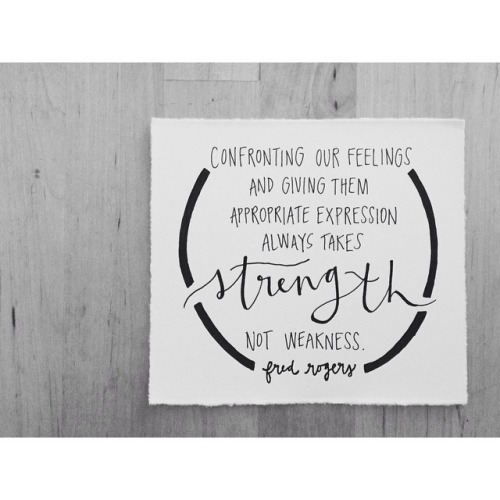 CONFRONTING OUR FEELINGS
AND GIVING THEM
APPROPRIATE EXPRESSION
ALWAYS TAKES
strength
NOT WEAKNESS.
fred rogers